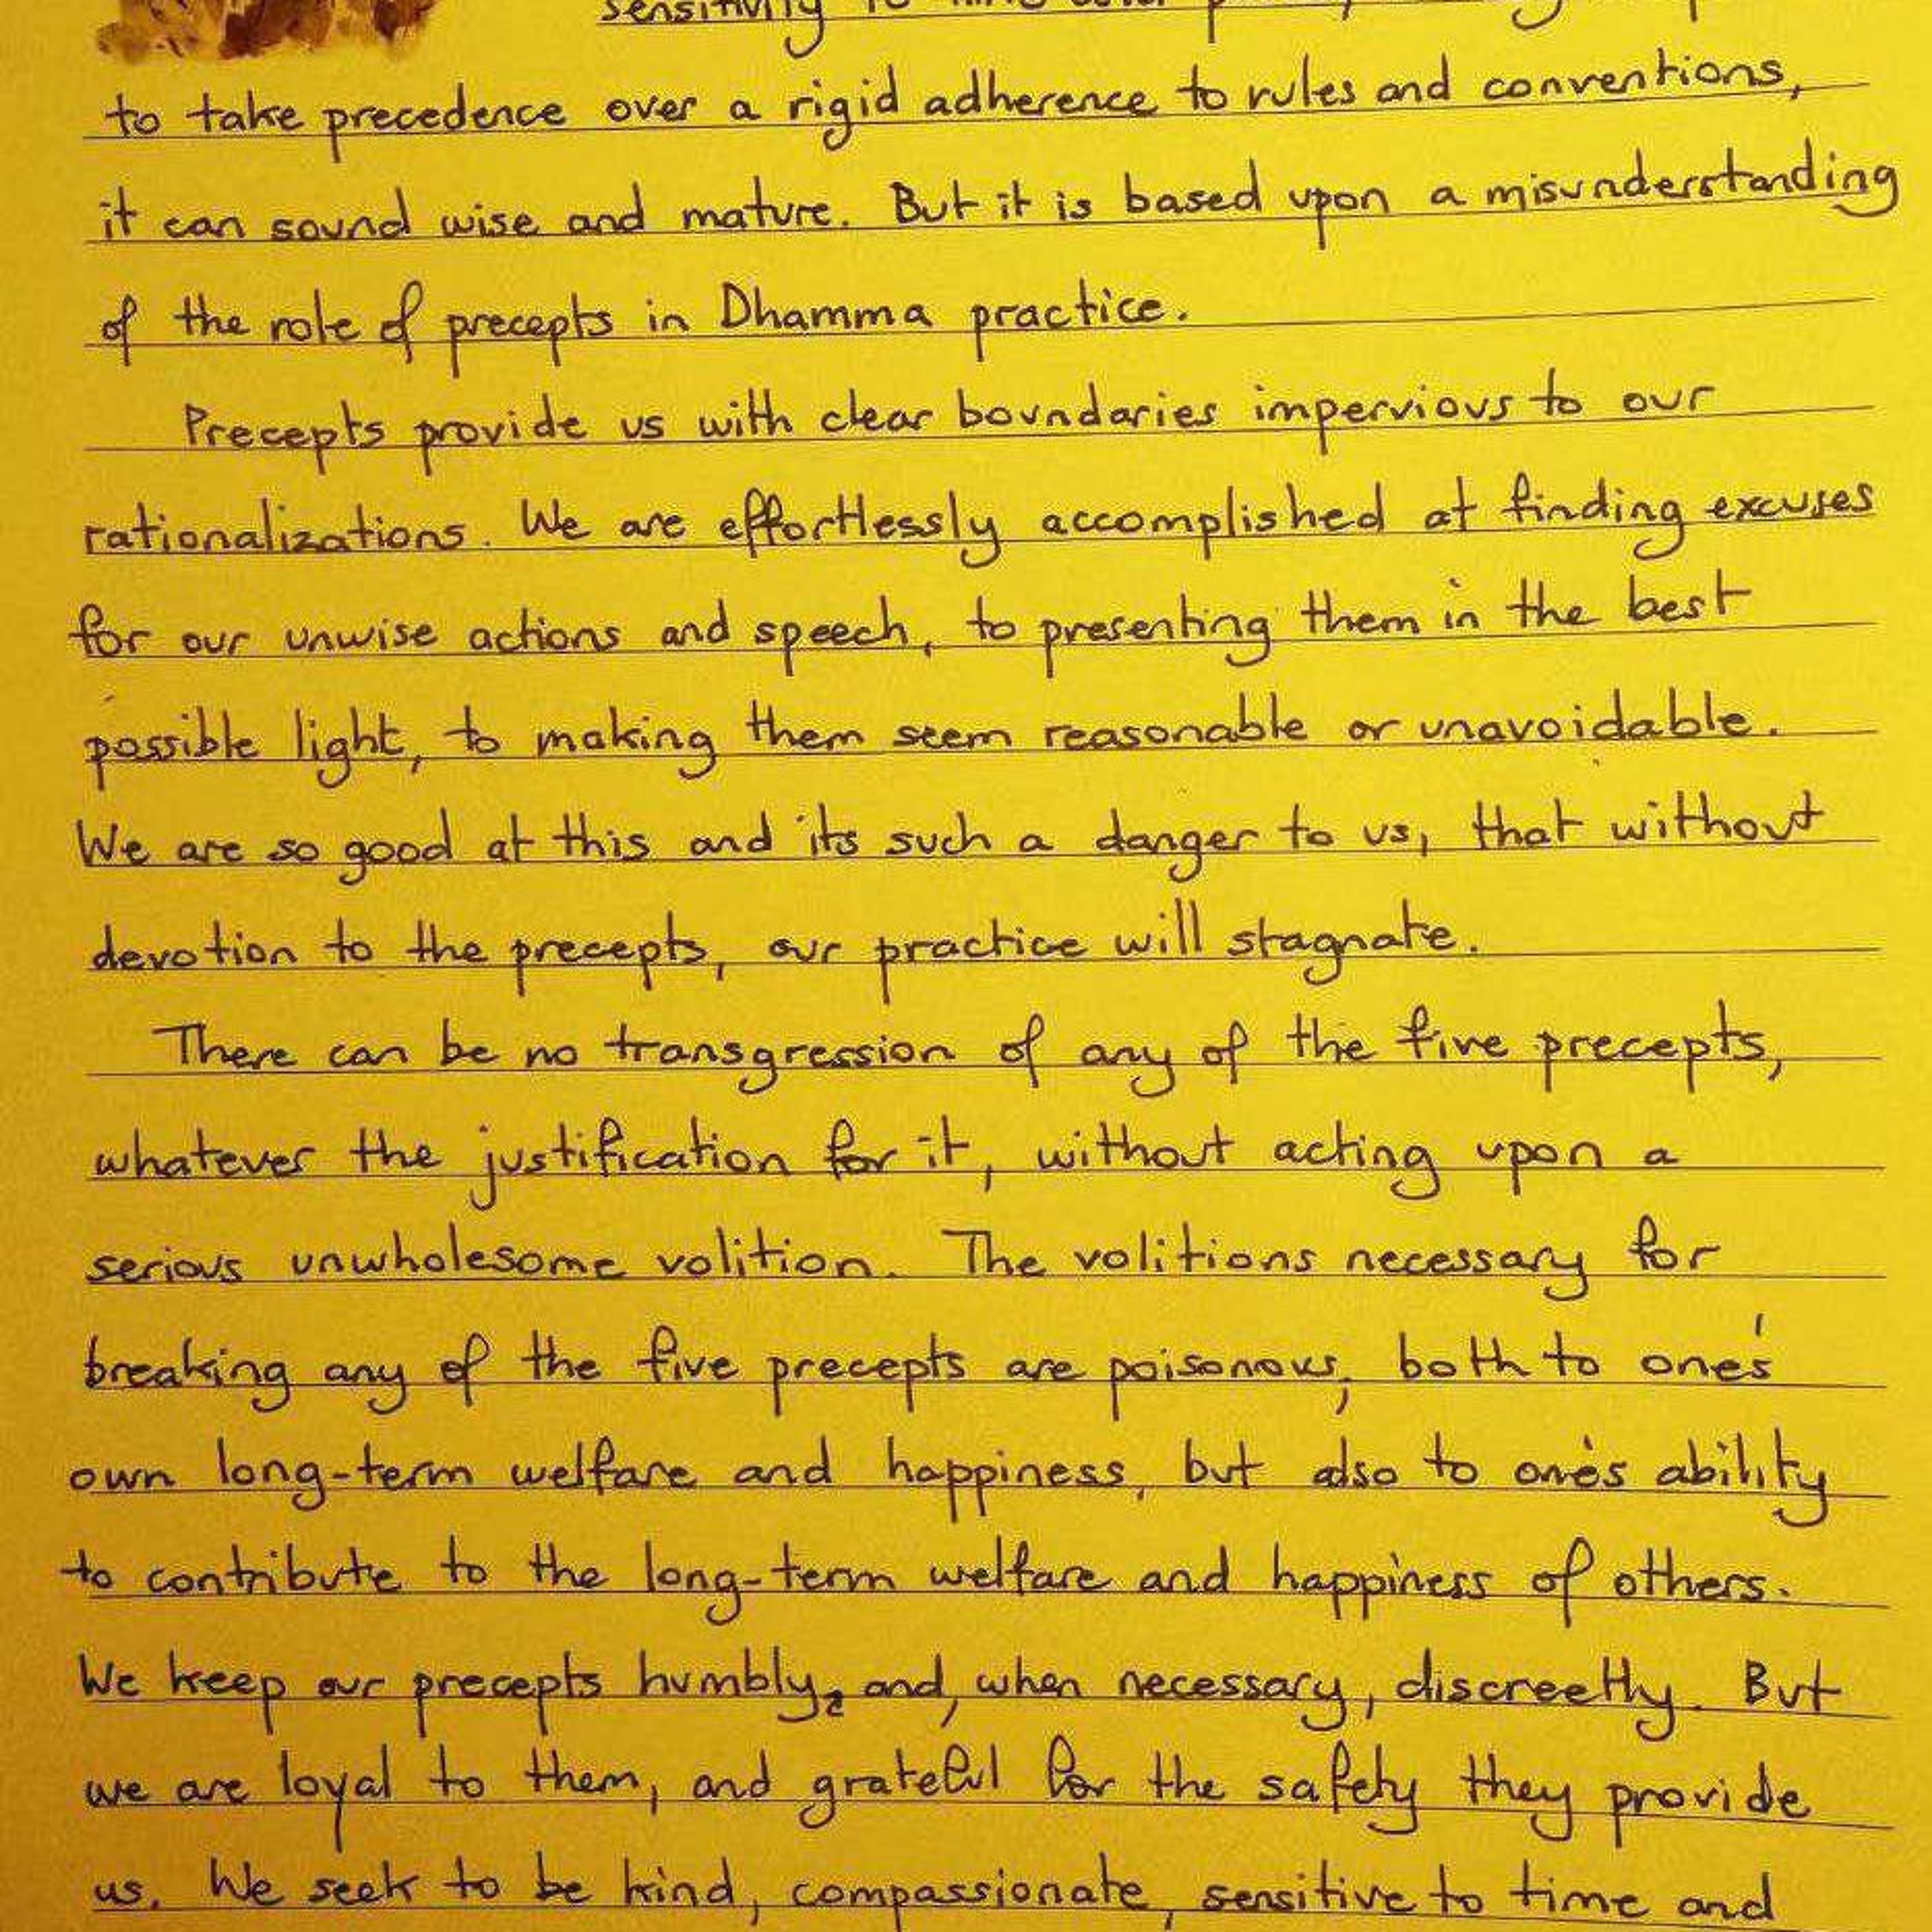 sensitivity to
to take precedence over a rigid adherence to rules and conventions,
it can sound wise and mature. But it is based upon a misunderstanding
of the role of precepts in Dhamma practice.
Precepts provide us with clear boundaries impervious to our
rationalizations. We are effortlessly accomplished at finding excuses
for our unwise actions and speech, to presenting them in the best
possible light, to making them seem reasonable or unavoidable.
We are so good at this and it's such a danger to us, that without
devotion to the precepts, our practice will stagnate.
There can be no transgression of any of the five precepts,
whatever the justification for it, without acting upon a
serious unwholesome volition. The volitions necessary for
breaking any of the five precepts are poisonous, both to one's
own long-term welfare and happiness, but also to one's ability
to contribute to the long-term welfare and happiness of others.
We keep our precepts humbly, and, when necessary, discreetly. But
we are loyal to them, and grateful for the safety they provide
us. We seek to be kind, compassionate, sensitive to time and